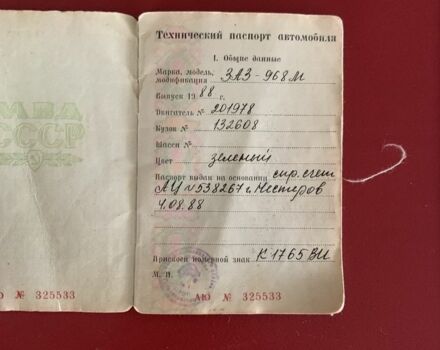 СССР
АЮ № 325533
Технический паспорт автомобиля
I. Общие данные
Марка, модель, модификация ЗАЗ-968М
Выпуск 1988 г.
Двигатель № 201978
Кузов № 132608
Шасси №
Цвет зеленый
Паспорт выдан на основании спр. счет
АЦ №538267 г. Нестеров
4.08.88
Присвоен номерной знак К1765ВИ
М. П.
АЮ № 325533